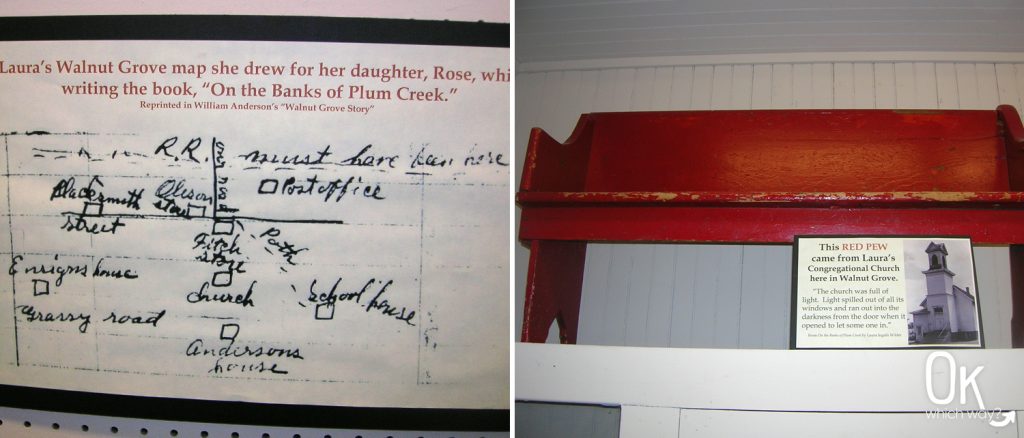 Laura's Walnut Grove map she drew for her daughter, Rose, whi
writing the book, "On the Banks of Plum Creek."
Reprinted in William Anderson's "Walnut Grove Story"
R.R. must have been here
Blacksmith
Oleson
store
Post office
street
Fitch
store
Path
Ensigns house
Church
School house
Grassy road
Andersons
house
This RED PEW
came from Laura's
Congregational Church
here in Walnut Grove.
"The church was full of
light. Light spilled out of all its
windows and ran out into the
darkness from the door when it
opened to let some one in."
from On the Banks of Plum Creek by Laura Ingalls Wilder
Ok
which way?